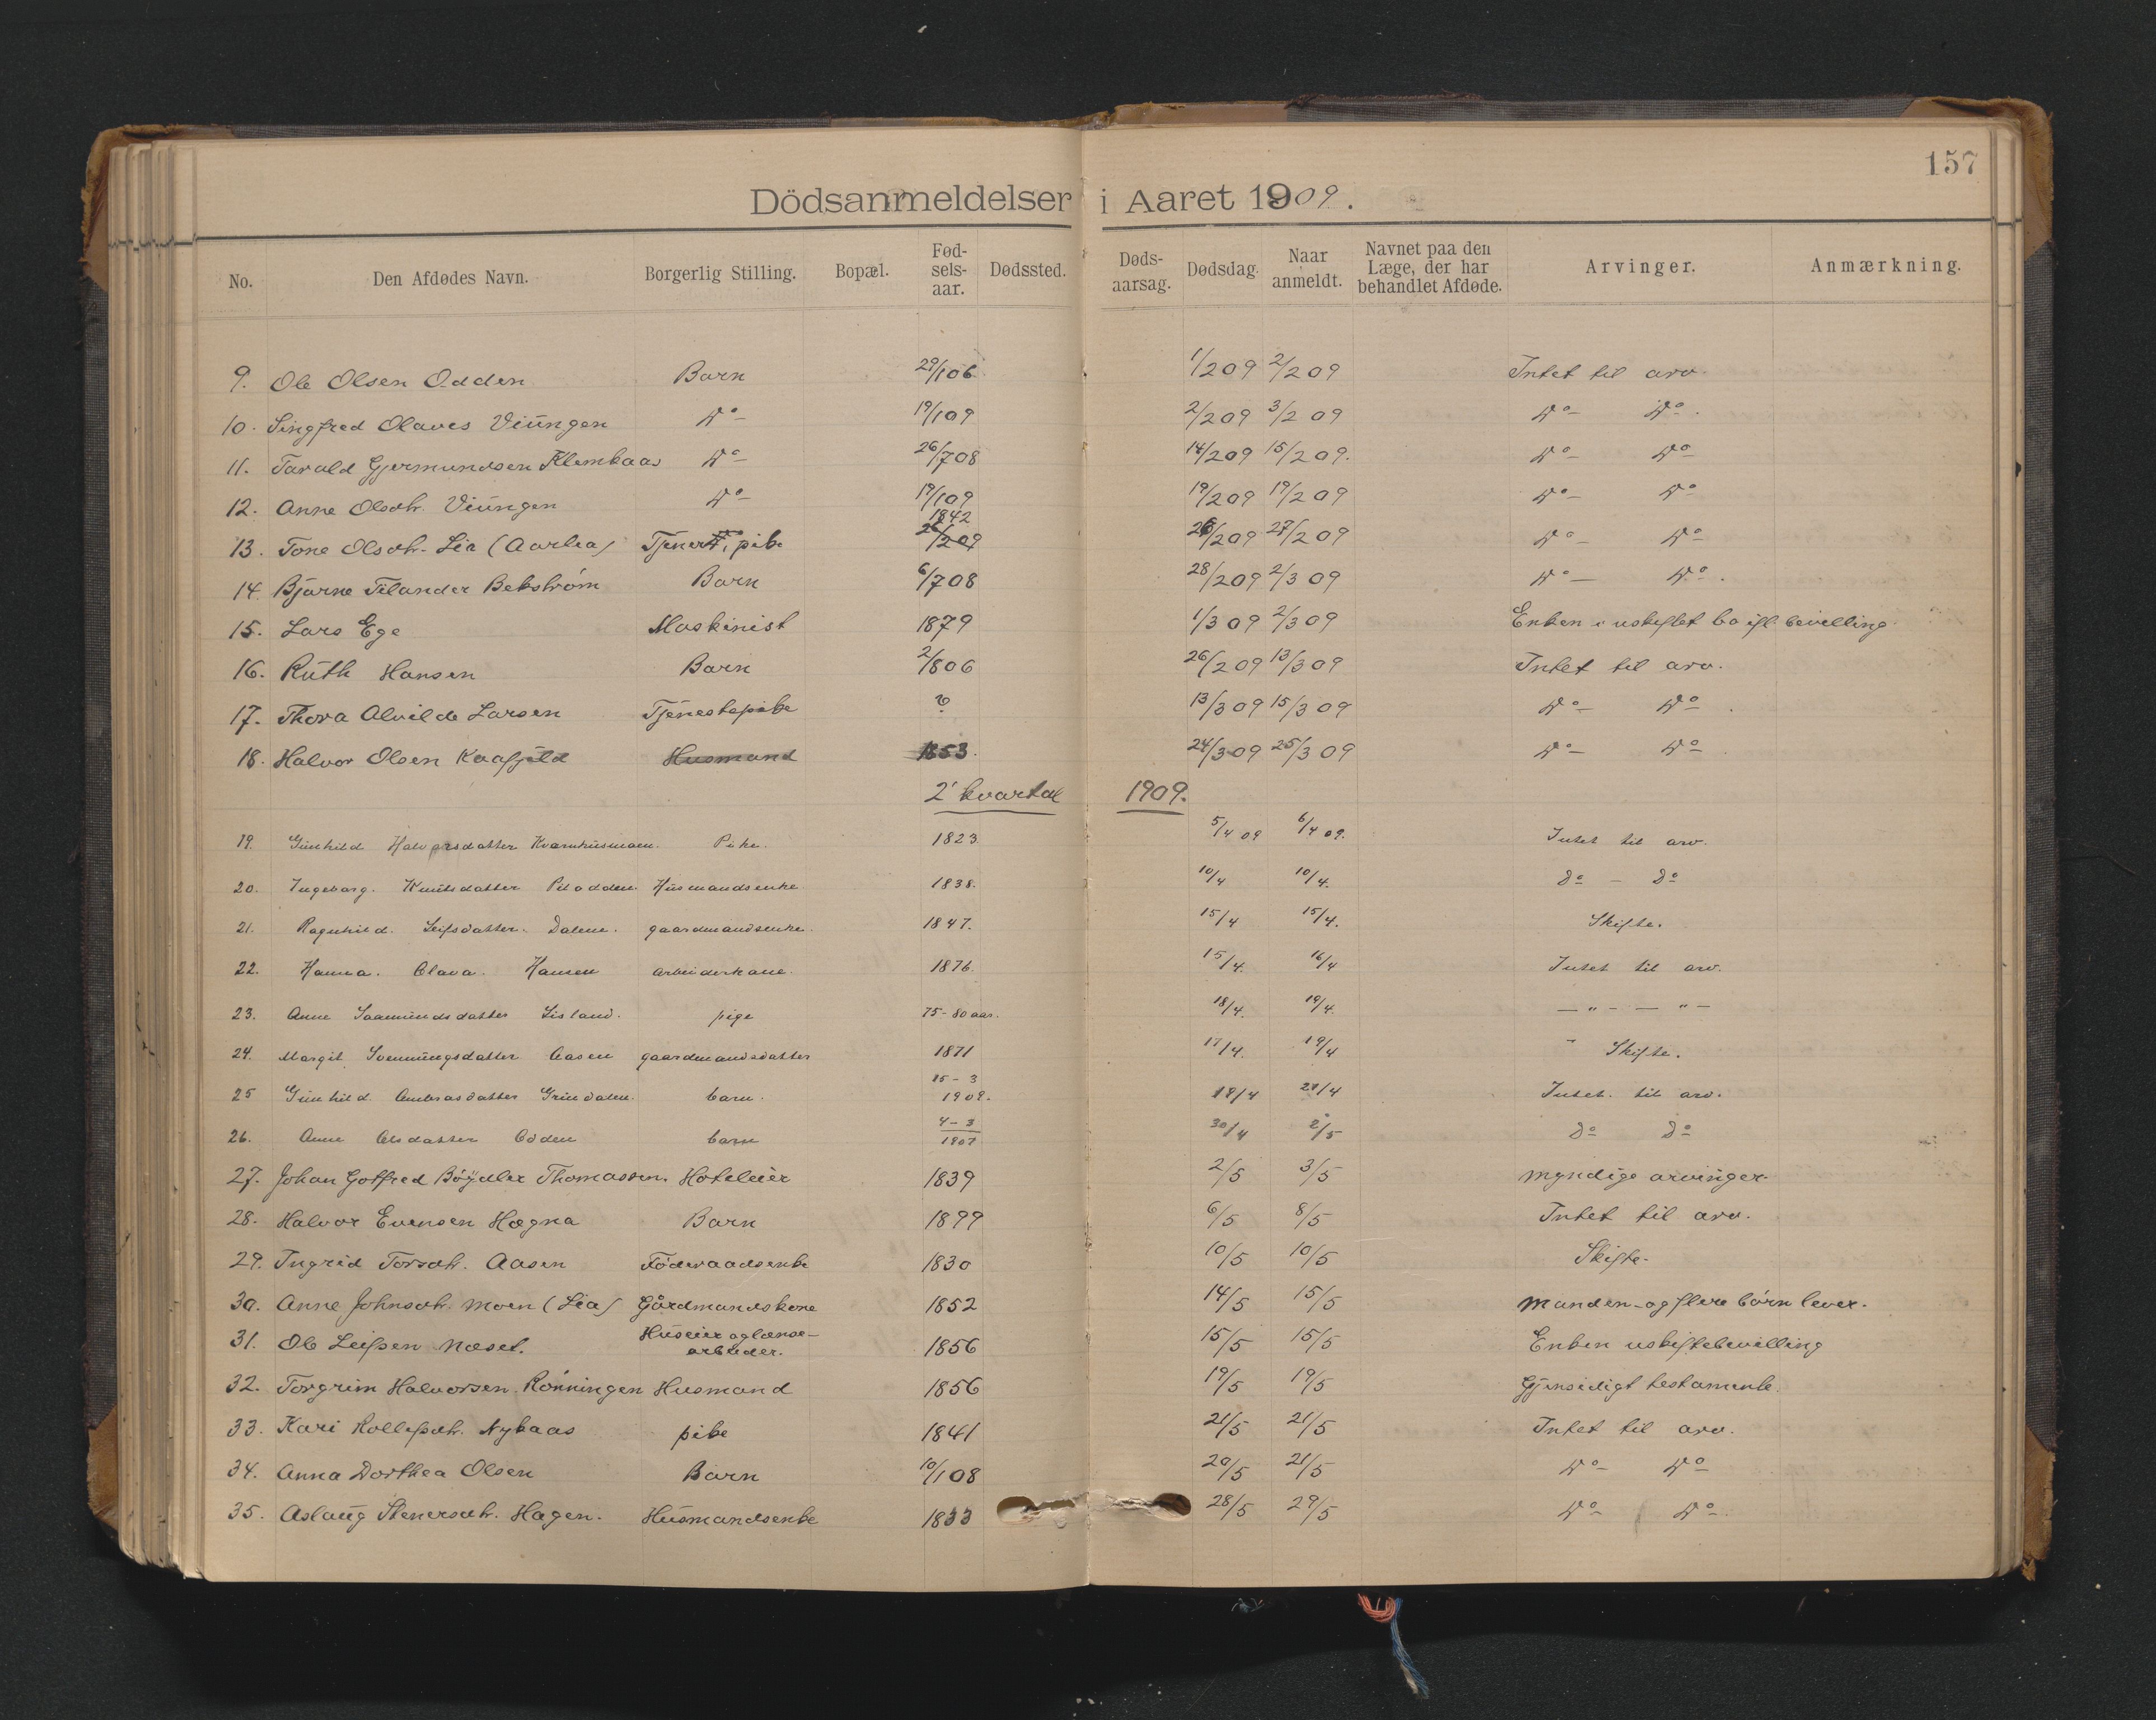 157
Dödsanmeldelser i Aaret 1909.
No. Den Afdødes Navn. Borgerlig Stilling. Bopæl. Fødselsaar. Dødssted. Dødsaarsag. Dødsdag. Naar anmeldt. Navnet paa den Læge, der har behandlet Afdøde. Arvinger. Anmærkning.
9. Ole Olsen Odden Barn 29/1 06 1/2 09 2/2 09 Intet til arv.
10. Singfred Olaves Viüngen Do 19/1 09 2/2 09 3/2 09 Do Do.
11. Tarald Gjermundsen Klembaas Do 26/7 08 14/2 09 15/2 09. Do Do
12. Anne Olsdtr. Viüngen Do 19/1 09 19/2 09 19/2 09 Do Do
13. Tone Olsdtr. Lia (Aarlia) Tjener pike 1842 26/2 09 27/2 09 Do Do
14. Bjarne Filander Bekström Barn 6/7 08 28/2 09 2/3 09 Do Do.
15. Lars Ege Maskinist 1879 1/3 09 2/3 09 Enken i uskiftet bo ifl. bevilling.
16. Rüth Hansen Barn 2/8 06 26/2 09 13/3 09 Intet til arv.
17. Thora Alvilde Larsen Tjenestepike ? 13/3 09 15/3 09 Do Do.
18. Halvor Olsen Kaafjeld Husmand 1853. 24/3 09 25/3 09 Do Do.
2' kvartal 1909.
19. Günhild Halvorsdatter Kvarnhusmoen. Pike. 1823 5/4 09 6/4 09. Intet til arv.
20. Ingeborg. Knütsdatter Pilodden. Hüsmandsenke 1838. 10/4 10/4. Do – Do
21. Ragnhild. Leifsdatter. Dalene. gaardmandsenke. 1847. 15/4 15/4. Skifte.
22. Hanna. Olava. Hansen arbeiderkone. 1876. 15/4. 16/4 Intet til arv.
23. Anne Saamündsdatter Lisland. pige 75-80 aar. 18/4. 19/4. — " — — " —
24. Margit Svenningsdatter Aasen gaardmandsdatter 1871 17/4. 19/4 Skifte.
25 Günhild. Ambrosdatter Grindalen. barn. 15-3 1909. 19/4 21/4 Intet. til arv.
26. Anne Olsdatter Odden barn 4-3 1907 30/4 2/5 Do Do
27. Johan Gotfred Böÿdler Thomassen. Hoteleier 1839 2/5 3/5 Myndige arvinger.
28. Halvor Evensen Hagna Barn 1899 6/5 8/5 Intet til arv.
29. Ingrid Torsdtr. Aasen Föderaadsenke 1830 10/5 10/5 Skifte.
30. Anne Johnsdtr. Moen (Lia) Gårdmandskone 1852 14/5 15/5 Manden og flere börn lever.
31. Ole Leifsen Næset. Hüseier og lænse-arbeider. 1856 15/5 15/5 Enken uskiftebevilling
32. Torgrim Halvorsen Rönningen Husmand 1856 19/5 19/5 Gjensidigt testamente.
33. Kari Rollefsdtr. Nykaas pike 1841 21/5 21/5 Intet til arv.
34. Anna Dorthea Olsen Barn 10/1 08 20/5 21/5 Do Do
35. Aslaüg Stenersdtr. Hagen. Hüsmandsenke 1833 28/5 29/5 Do Do.